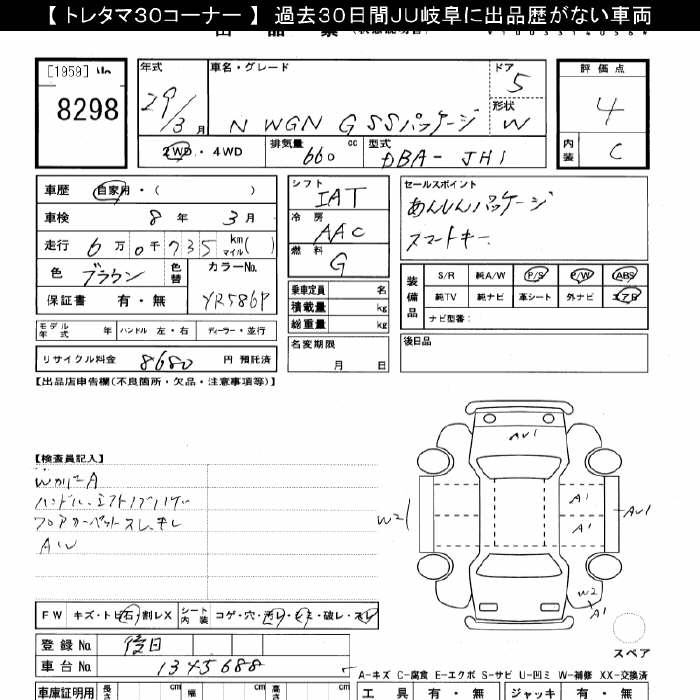 【 トレタマ30コーナー 】 過去30日間JU岐阜に出品歴がない車両
[1959]
8298
年式
29/3 月
車名・グレード
N WGN G SSパッケージ
ドア
5
形状
W
評価点
4
内装
C
2WD・4WD
排気量
660 cc
型式
DBA- JH1
車歴 自家用・( )
車検 8 年 3 月
走行 6 万 0 千 735 km マイル( )
色 ブラウン
色替
カラーNo.
YR586P
保証書 有・無
シフト
IAT
冷房
AAC
燃料
G
乗車定員 名
積載量 kg
総重量 kg
セールスポイント
あんしんパッケージ
スマートキー
装備品
S/R 純A/W P/S P/W ABS
純TV 純ナビ 革シート 外ナビ エアB
ナビ型番:
モデル年式 年 ハンドル 左・右 ディーラー・並行
名変期限
月 日
後日品
リサイクル料金 8680 円 預託済
【出品店申告欄(不良箇所・欠品・注意事項等)】
【検査員記入】
WカバーA
フロアカーペットスレ、キレ
AW
AU1
W2
A1
A1
AU1
W2
A1
スペア
FW キズ・トビ石・割レX
シート内装 コゲ・穴・汚レ・シミ・破レ・スレ
登録No. 後日
車台No. 1345688
A-キズ C-腐食 E-エクボ S-サビ U-凹ミ W-補修 XX-交換済
車庫証明用 長さ cm 幅 cm 高さ cm
工具 有・無 ジャッキ 有・無